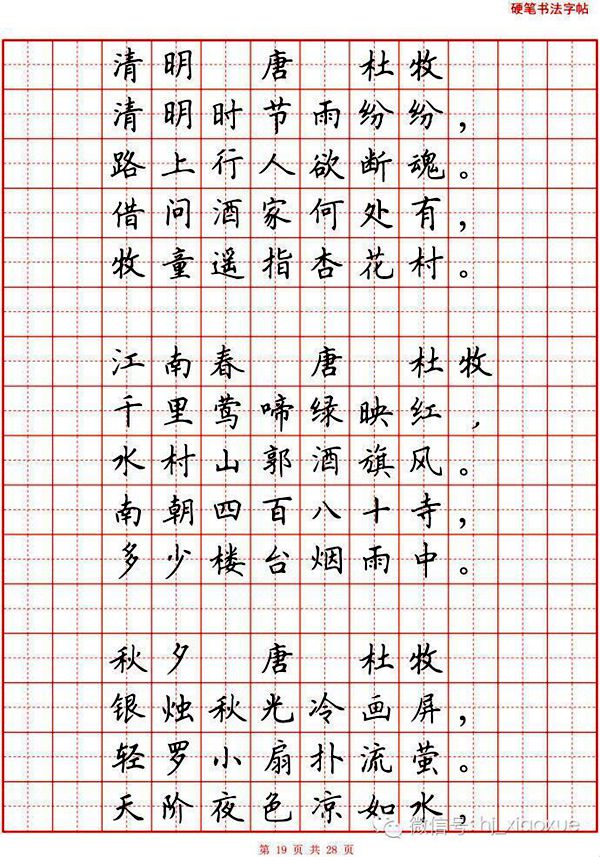 硬笔书法字帖
清明 唐 杜牧
清明时节雨纷纷，
路上行人欲断魂。
借问酒家何处有，
牧童遥指杏花村。
江南春 唐 杜牧
千里莺啼绿映红，
水村山郭酒旗风。
南朝四百八十寺，
多少楼台烟雨中。
秋夕 唐 杜牧
银烛秋光冷画屏，
轻罗小扇扑流萤。
天阶夜色凉如水，
微信号: hj_xiaoxue
第 19 页 共 28 页